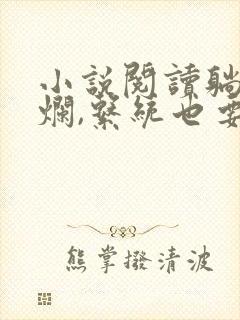 小說閱讀躺
爛,系統也要
熊掌撥清波